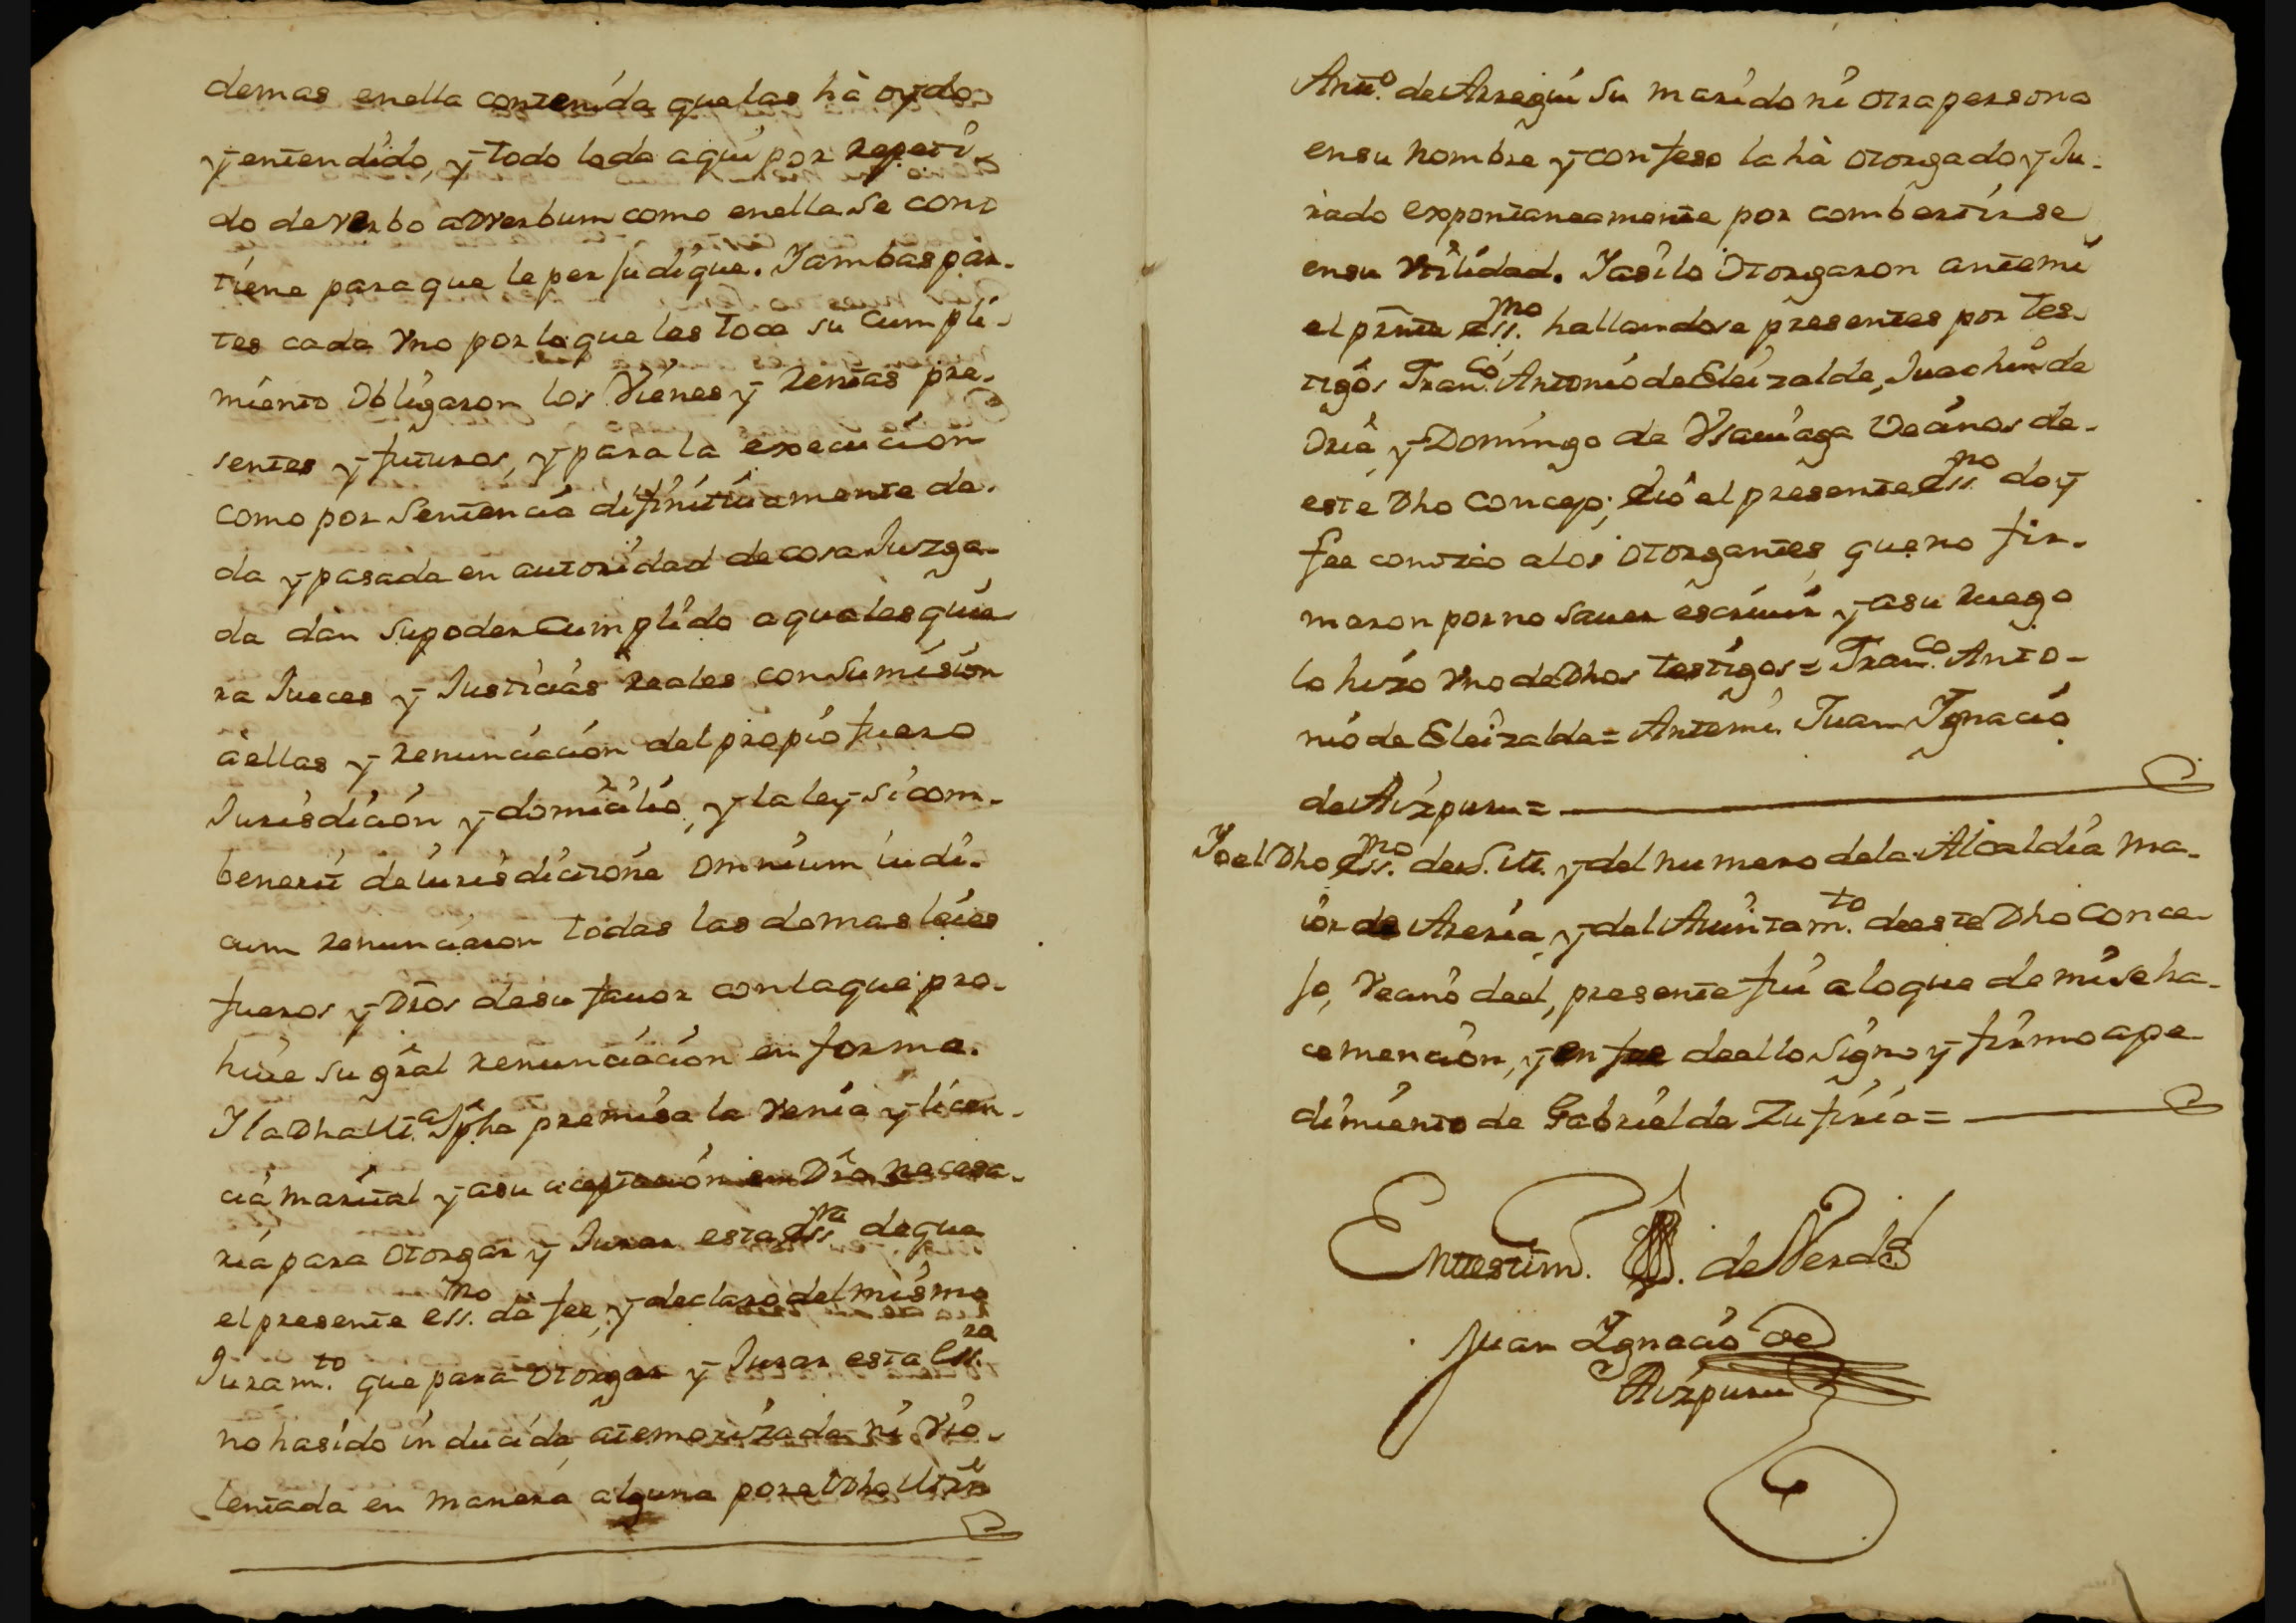 demas enella contenida que las hà oydo
y entendido, y todo lo da aqui por repeti-
do de verbo adverbum como enella se con-
tiene para que le perjudique. Y ambas par-
tes cada vno por lo que les toca su cumpli-
miento obligaron los Vienes y rentas pre-
sentes y futuros, y para la execucion
como por sentencia difinitiuamente da-
da y pasada en autoridad de cosa Juzga-
da dan su poder Cumplido a qualesquie
ra Jueces y Justicias reales con sumision
à ellas y renunciacion del propio fuero
Jurisdicion y domicilio, y la ley si com-
benerit de iurisdictione omnium iudi-
cum renunciaron todas las demas leies
fueros y Dros de su fauor con la que pro-
hiue su gral renunciacion en forma.
Y la Dha M.ª Jpha premisa la venia y licen-
cia marital y a su aceptacion en Dro necesa-
ria para otorgar y Jurar esta ess.ra de que
el presente ess.no da fee, y declaro del mismo
Juram.to que para otorgar y Jurar esta Ess.ra
no ha sido inducida, atemorizada ni vio-
lentada en manera alguna por el Dho
Antt.o de Arregui su marido ni otra persona
en su nombre y confeso la hà otorgado y Ju-
rado expontaneamente por combertirse
en su vtilidad. Y asi lo otorgaron ante mi
el prnte ess.no hallandose presentes por tes-
tigos Fran.co Antonio de Eleizalde, Juachin de
Oria, y Domingo de Vsauiaga Vecinos de
este Dho Concejo; è io el presente Ess.no doy
fee conozco a los otorgantes que no fir-
maron por no sauer escriuir y a su ruego
lo hizo vno de Dhos testigos = Fran.co Anto-
nio de Eleizalde = Antemi Juan Ygnacio
de Aizpuru =
Yo el Dho Ess.no de S. M. y del numero dela Alcaldia ma-
ior de Areria, y del Aiuntam.to de este Dho Conce-
jo, Vecino de el, presente fui a lo que de mi se ha-
ce mencion, y en fee de ello signo y firmo a pe-
dimiento de Gabriel de Zufiria =
En testim. de Verdad
Juan Ygnacio de
Aizpuru